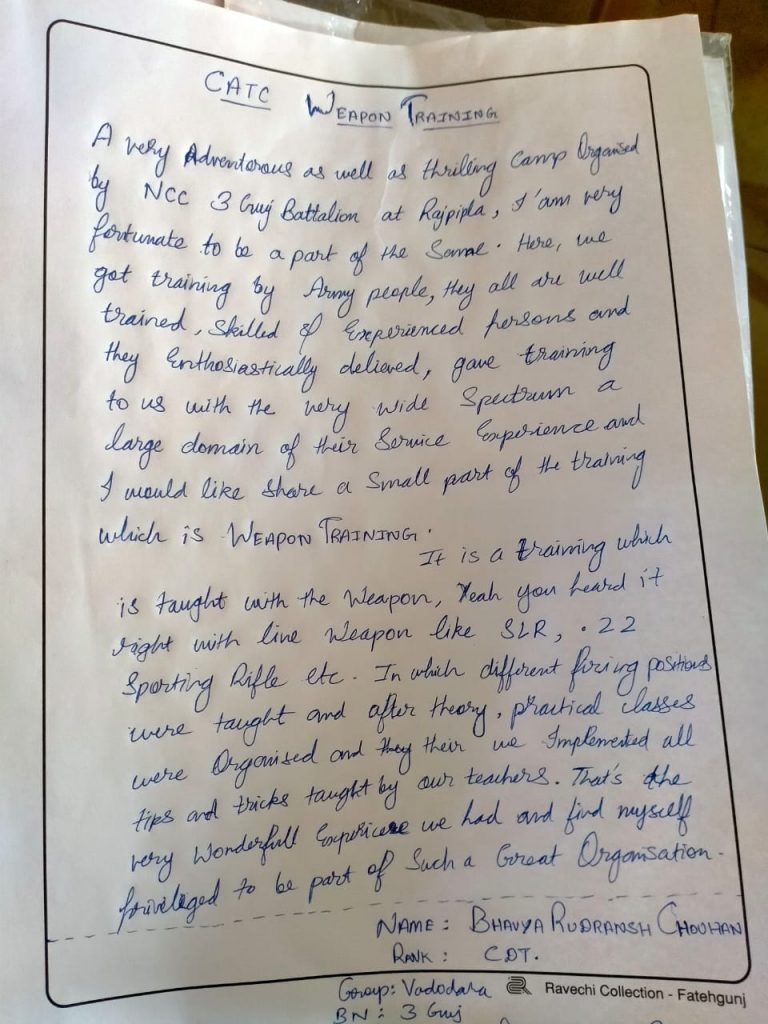 CATC WEAPON TRAINING
A very Adventorous as well as thrilling Camp Organised
by NCC 3 Guj Battalion at Rajpipla, I'am very
fortunate to be a part of the Same. Here, we
got training by Army people, they all are well
trained, Skilled & Experienced persons and
they Enthosiastically delieved, gave training
to us with the very wide Spectrum a
large domain of their Service Experience and
I would like share a small part of the training
which is WEAPON TRAINING.
It is a training which
is taught with the Weapon, Yeah you heard it
right with live Weapon like SLR, .22
Sporting Rifle etc. In which different firing positions
were taught and after theory, practical classes
were Organised and they their we Implemented all
tips and tricks taught by our teachers. That's the
very Wonderfull Experice we had and find myself
priviledged to be part of Such a Great Organisation.
NAME: BHAVYA RUDRANSH CHOUHAN
RANK: CDT.
Group: Vadodara
Ravechi Collection - Fatehgunj
BN: 3 Guj